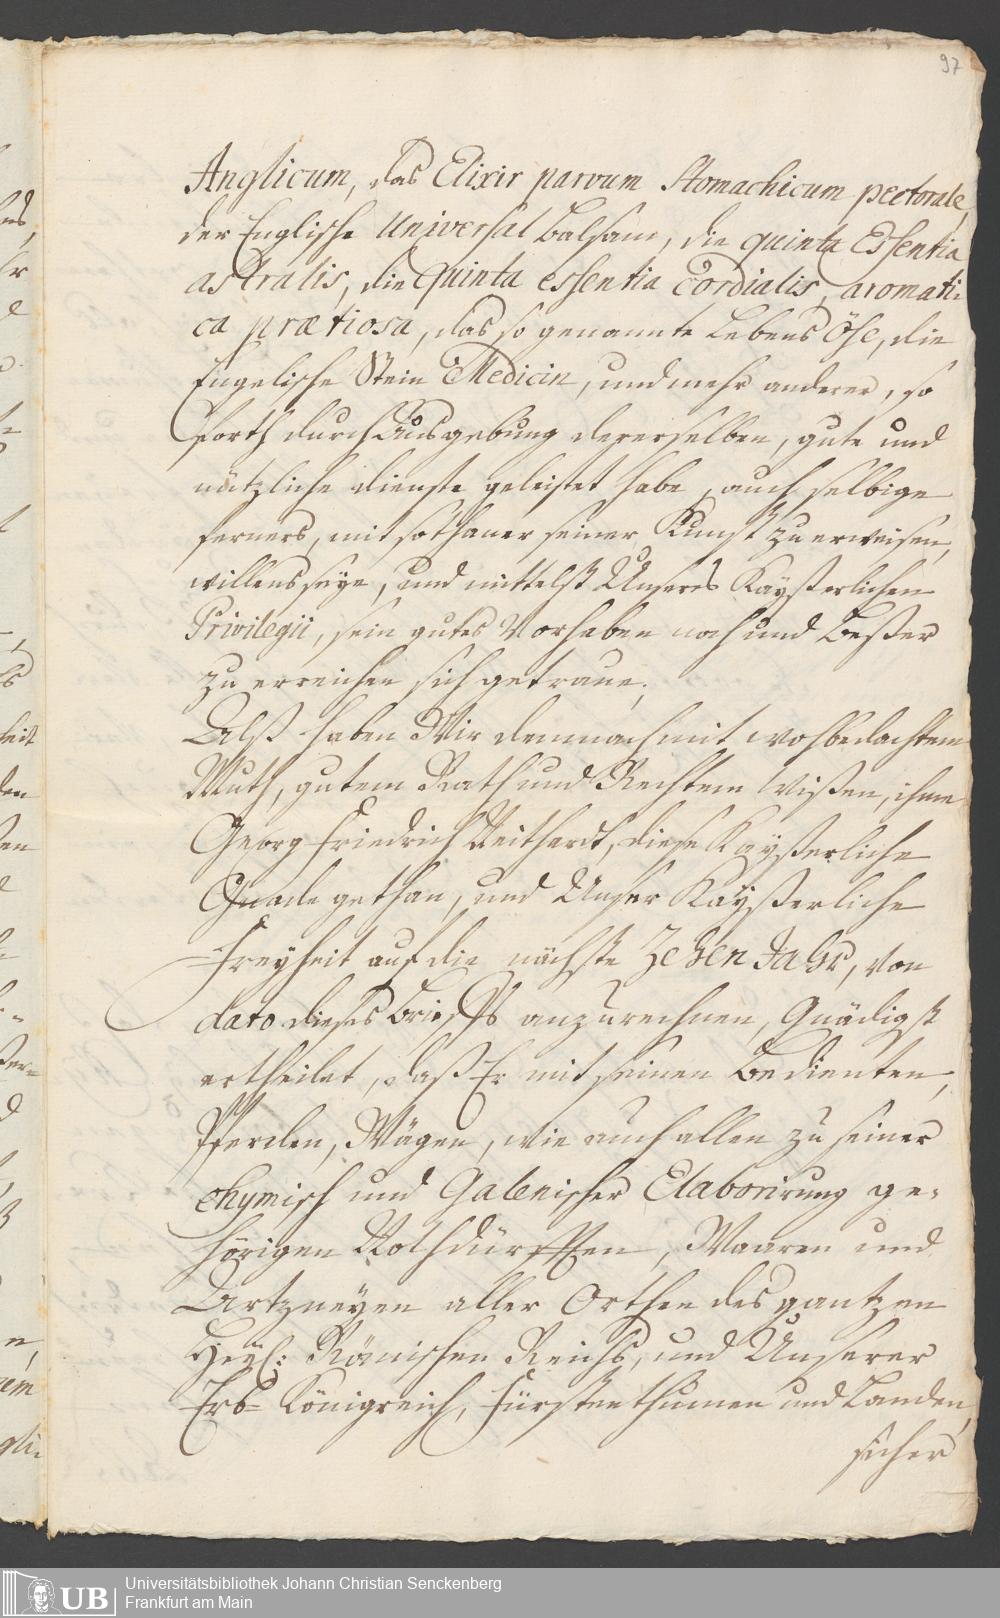 97
Anglicum, das Elixir parvum Stomachicum pectorale,
der Englische Universal Balsam, die quinta Essentia
astralis, die quinta essentia Cordialis, aromati-
ca prætiosa, das so genannte Lebens Öhl, die
Engelische Stein Medicin, und mehr anderer, so
forth durch Ausgebung derenselben, gute und
nützliche dienste geleistet habe, auch selbige
ferners, mit sothaner seiner Kunst zu erweisen,
willens seye, und mittelst Unseres Kayßerlichen
Privilegii, sein gutes Vorhaben noch und beßer
zu erreichen sich getraue;
Alß haben Wir demnach mit wohlbedachtem
Muth, gutem Rath und Rechtem Wißen, ihme
Georg Friedrich Neithardt, diese Kayßerliche
Gnade gethan, und Unser Kayßerliche
Freyheit auf die nächste Zehen Jahr, von
dato dieses Brieffs anzurechnen, Gnädigst
ertheilet, daß Er mit seinen Bedienten,
Pferden, Wägen, wie auch allen zu seiner
chymisch und Galenischer Elaborirung ge-
hörigen Nothdürfften, Waaren und
Artzneyen aller Orthen des gantzen
Heyl: Römischen Reichs, und Unserer
Erb- Königreich, Fürstenthumen und Landen,
sicher
UB
Universitätsbibliothek Johann Christian Senckenberg
Frankfurt am Main